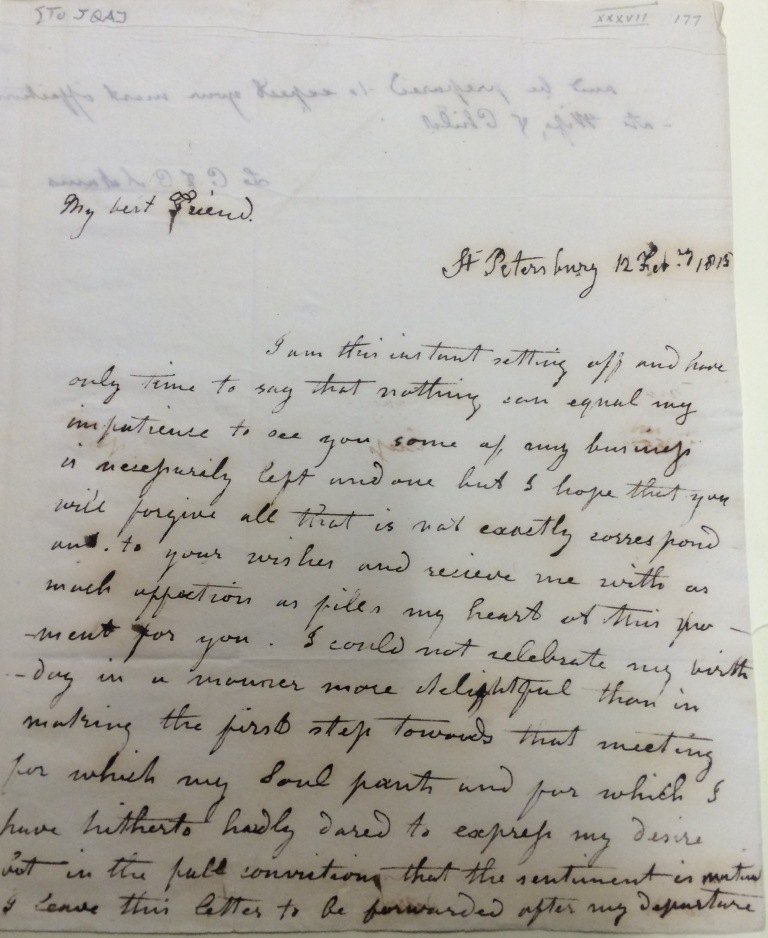 [To JQA]
XXXVII 177
and be prepared to expect your most affection
-ate Wife, & Child
L C & C Adams
My best Friend.
St Petersburg 12 Feby 1815
I am this instant setting off and have
only time to say that nothing can equal my
impatience to see you some of my business
is necessarily left undone but I hope that you
will forgive all that is not exactly correspond
ant to your wishes and recieve me with as
much affection as fills my heart at this mo-
-ment for you. I could not celebrate my birth
-day in a manner more delightful than in
making the first step towards that meeting
for which my Soul pants and for which I
have hitherto hardly dared to express my desire
but in the full conviction that the sentiment is mutual
I leave this letter to be forwarded after my departure